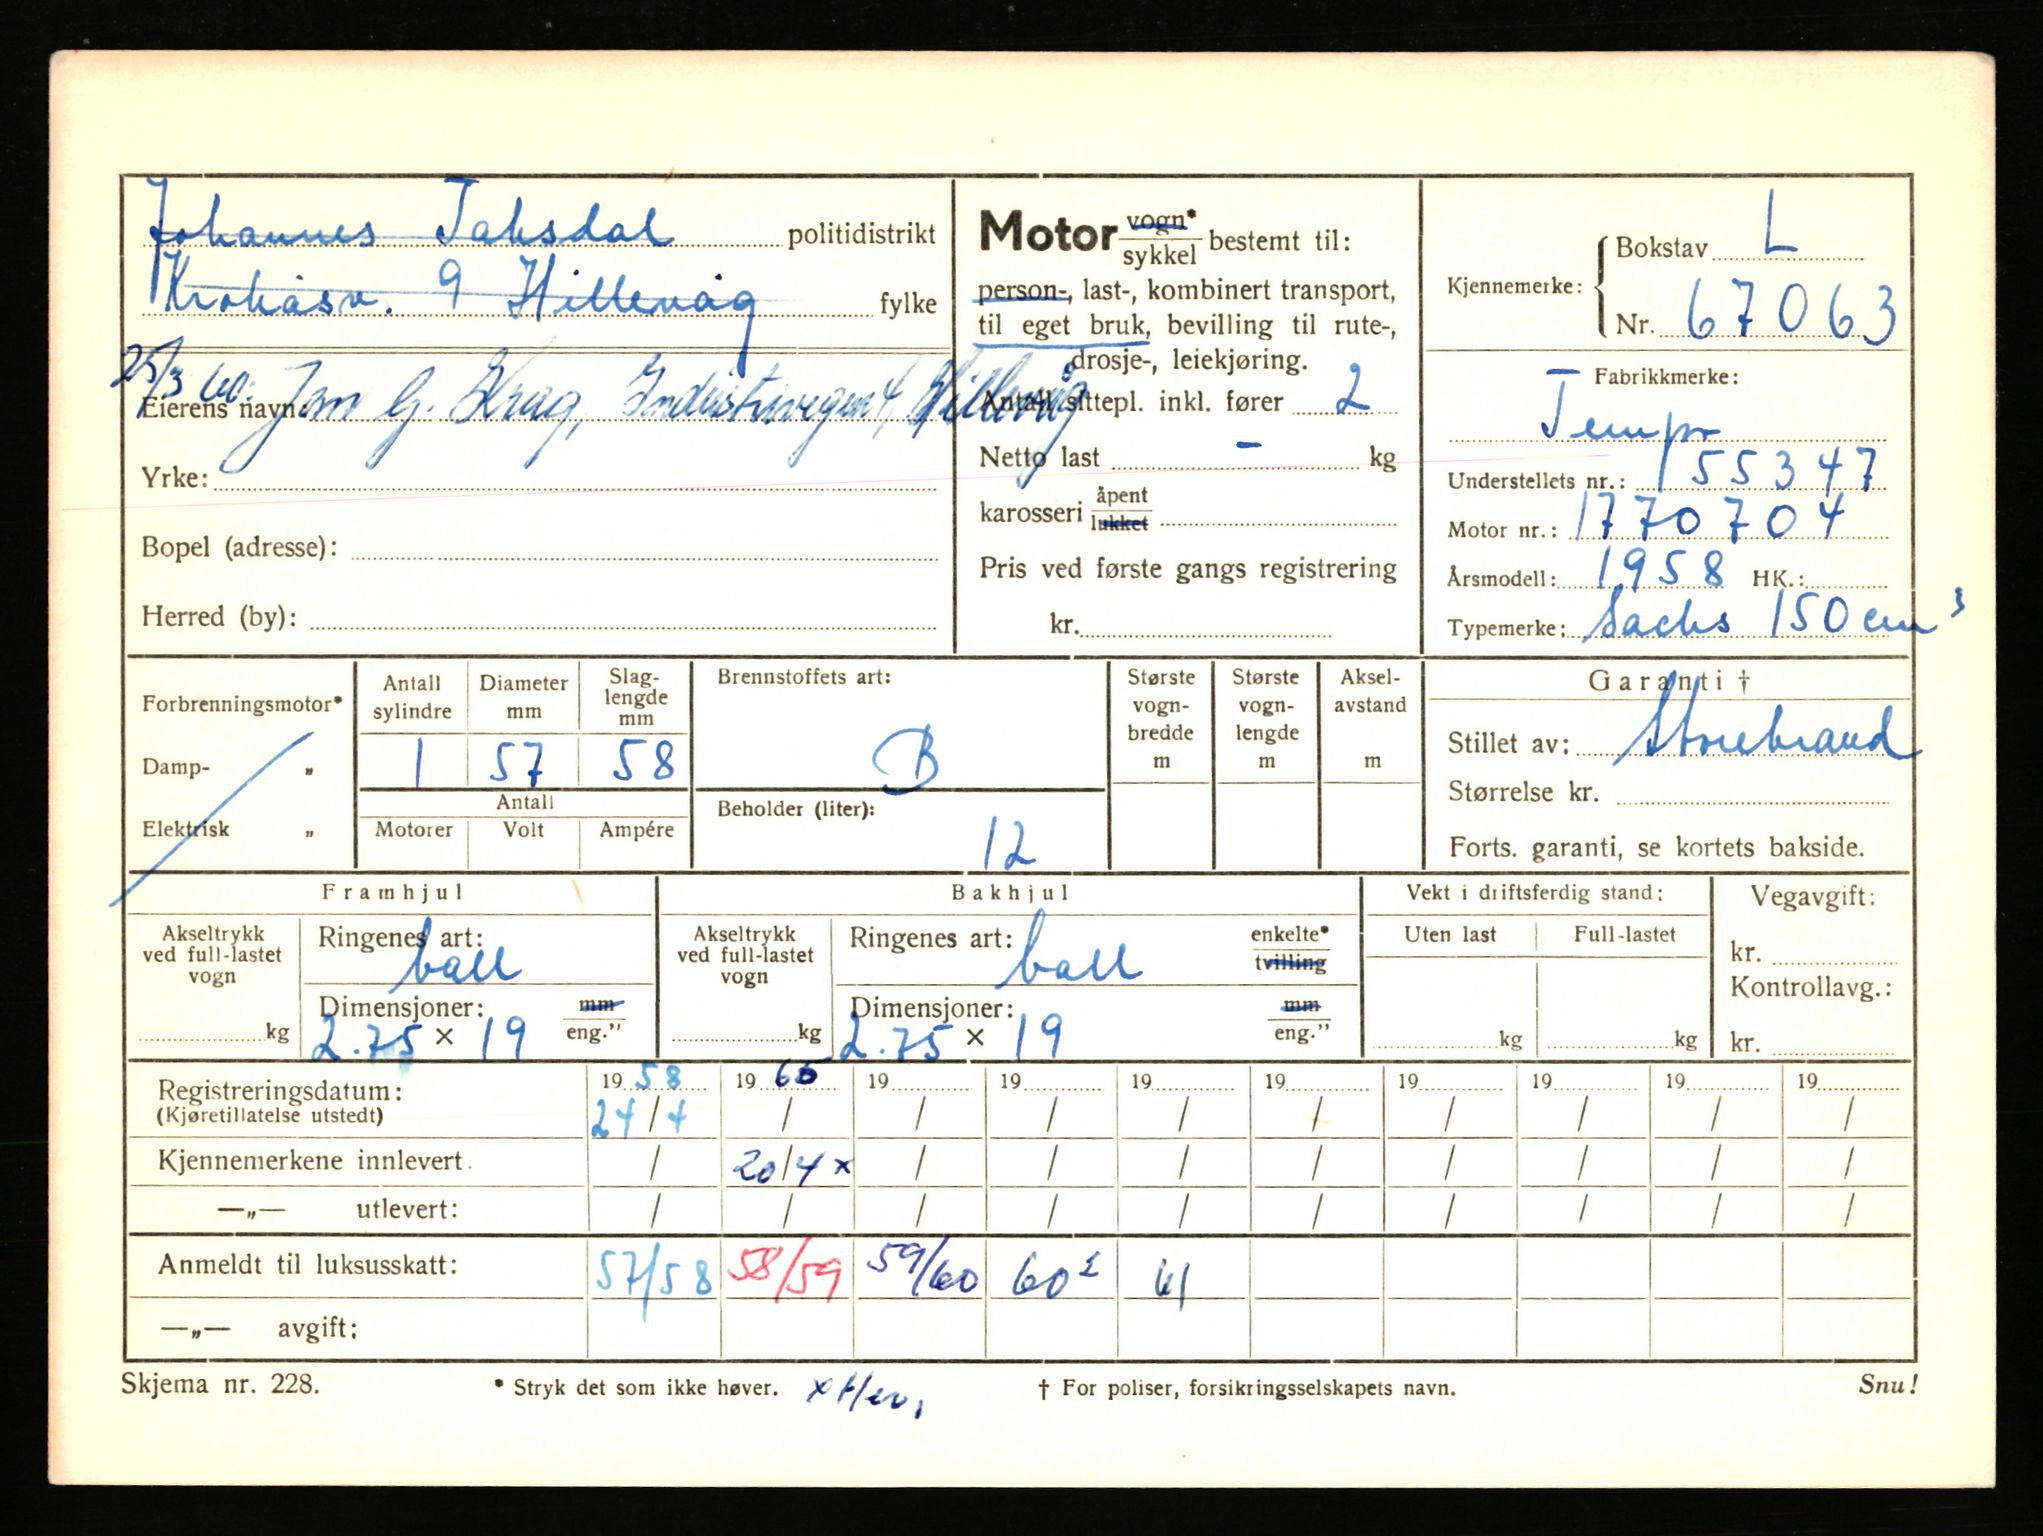 Johannes Taksdal politidistrikt
Krokåsv. 9 Hillevåg fylke
25/3 60. Jan G. Krag, Industrivegen 4, Hillevåg
Eierens navn
Yrke:
Bopel (adresse):
Herred (by):
Motor vogn* / sykkel bestemt til:
person-, last-, kombinert transport,
til eget bruk, bevilling til rute-,
drosje-, leiekjøring.
Antall sittepl. inkl. fører 2
Netto last - kg
karosseri åpent / lukket
Pris ved første gangs registrering
kr.
Kjennemerke: Bokstav L
Nr. 67063
Fabrikkmerke:
Tempo
Understellets nr.: 155347
Motor nr.: 1770704
Årsmodell: 1958 HK.:
Typemerke: Sachs 150 cm³
Forbrenningsmotor*
Damp- „
Elektrisk „
Antall sylindre Diameter mm Slag-lengde mm
1 57 58
Antall
Motorer Volt Ampére
Brennstoffets art:
B
Beholder (liter):
12
Største vogn-bredde m
Største vogn-lengde m
Aksel-avstand m
Garanti †
Stillet av: Storebrand
Størrelse kr.
Forts. garanti, se kortets bakside.
Framhjul
Akseltrykk ved full-lastet vogn
kg
Ringenes art: ball
Dimensjoner: mm / eng."
2.75 × 19
Bakhjul
Akseltrykk ved full-lastet vogn
kg
Ringenes art: ball enkelte* / tvilling
Dimensjoner: mm / eng."
2.75 × 19
Vekt i driftsferdig stand:
Uten last Full-lastet
kg kg
Vegavgift:
kr.
Kontrollavg.:
kr.
Registreringsdatum: 1958 1960 19 19 19 19 19 19 19 19
(Kjøretillatelse utstedt) 24/4 / / / / / / / / /
Kjennemerkene innlevert. / 20/4 x / / / / / / / /
—„— utlevert: / / / / / / / / / /
Anmeldt til luksusskatt: 57/58 58/59 59/60 60² 61
—„— avgift:
Skjema nr. 228. * Stryk det som ikke høver. x † For poliser, forsikringsselskapets navn. Snu!